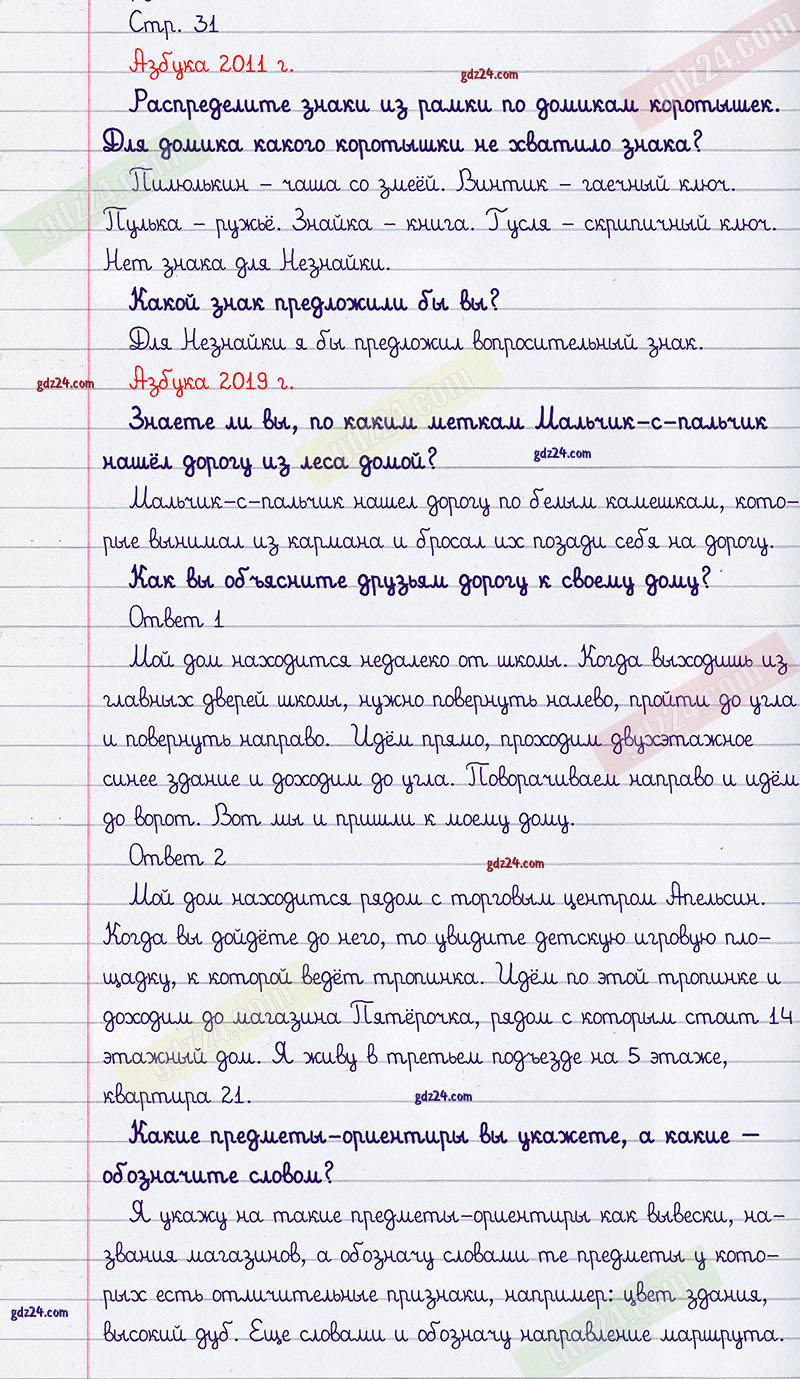 Стр. 31
Азбука 2011 г.
gdz24.com
gdz24.com
Распределите знаки из рамки по домикам коротышек.
Для домика какого коротышки не хватило знака?
Пилюлькин – чаша со змеёй. Винтик – гаечный ключ.
gdz24.com
Пулька – ружьё. Знайка – книга. Гусля – скрипичный ключ.
Нет знака для Незнайки.
Какой знак предложили бы вы?
Для Незнайки я бы предложил вопросительный знак.
gdz24.com
Азбука 2019 г.
gdz24.com
Знаете ли вы, по каким меткам Мальчик-с-пальчик
нашёл дорогу из леса домой?
gdz24.com
Мальчик-с-пальчик нашел дорогу по белым камешкам, кото-
рые вынимал из кармана и бросал их позади себя на дорогу.
Как вы объясните друзьям дорогу к своему дому?
Ответ 1
Мой дом находится недалеко от школы. Когда выходишь из
главных дверей школы, нужно повернуть налево, пройти до угла
gdz24.com
и повернуть направо. Идём прямо, проходим двухэтажное
синее здание и доходим до угла. Поворачиваем направо и идём
до ворот. Вот мы и пришли к моему дому.
Ответ 2
gdz24.com
Мой дом находится рядом с торговым центром Апельсин.
Когда вы дойдёте до него, то увидите детскую игровую пло-
щадку, к которой ведёт тропинка. Идём по этой тропинке и
доходим до магазина Пятёрочка, рядом с которым стоит 14
gdz24.com
этажный дом. Я живу в третьем подъезде на 5 этаже,
квартира 21.
gdz24.com
Какие предметы-ориентиры вы укажете, а какие –
обозначите словом?
Я укажу на такие предметы-ориентиры как вывески, на-
звания магазинов, а обозначу словами те предметы у кото-
рых есть отличительные признаки, например: цвет здания,
gdz24.com
высокий дуб. Еще словами и обозначу направление маршрута.
gdz24.com